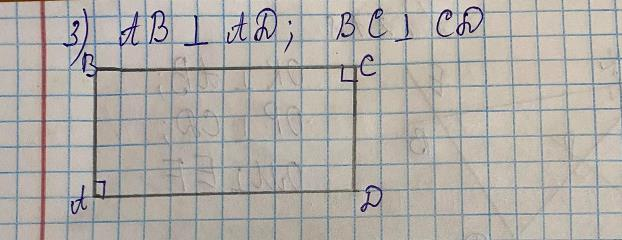 3) AB ⊥ AD; BC ⊥ CD
B C
A D